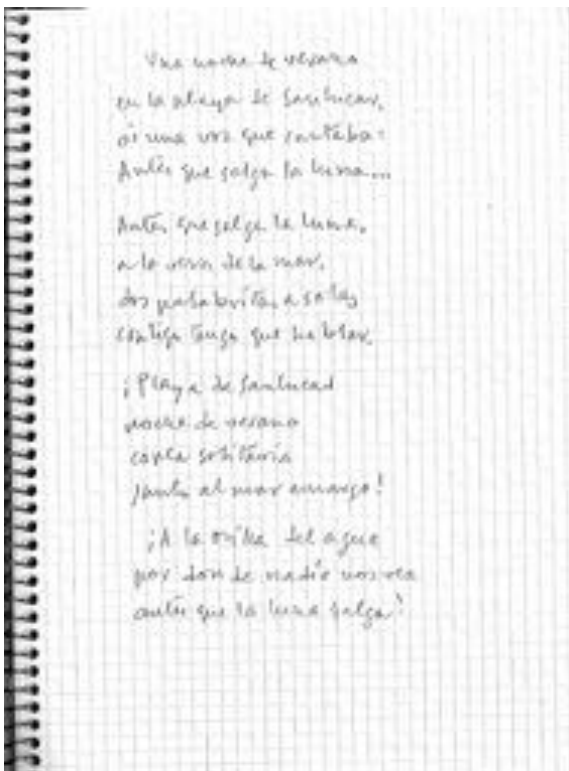 Una noche de verano
en la playa de Sanlúcar,
oí una voz que cantaba:
Antes que salga la luna...
Antes que salga la luna,
a la vera de la mar,
dos palabritas a solas
contigo tengo que hablar.
¡Playa de Sanlucar
noche de verano
copla solitaria
junto al mar amargo!
¡A la orilla del agua
por donde nadie nos vea
antes que la luna salga!